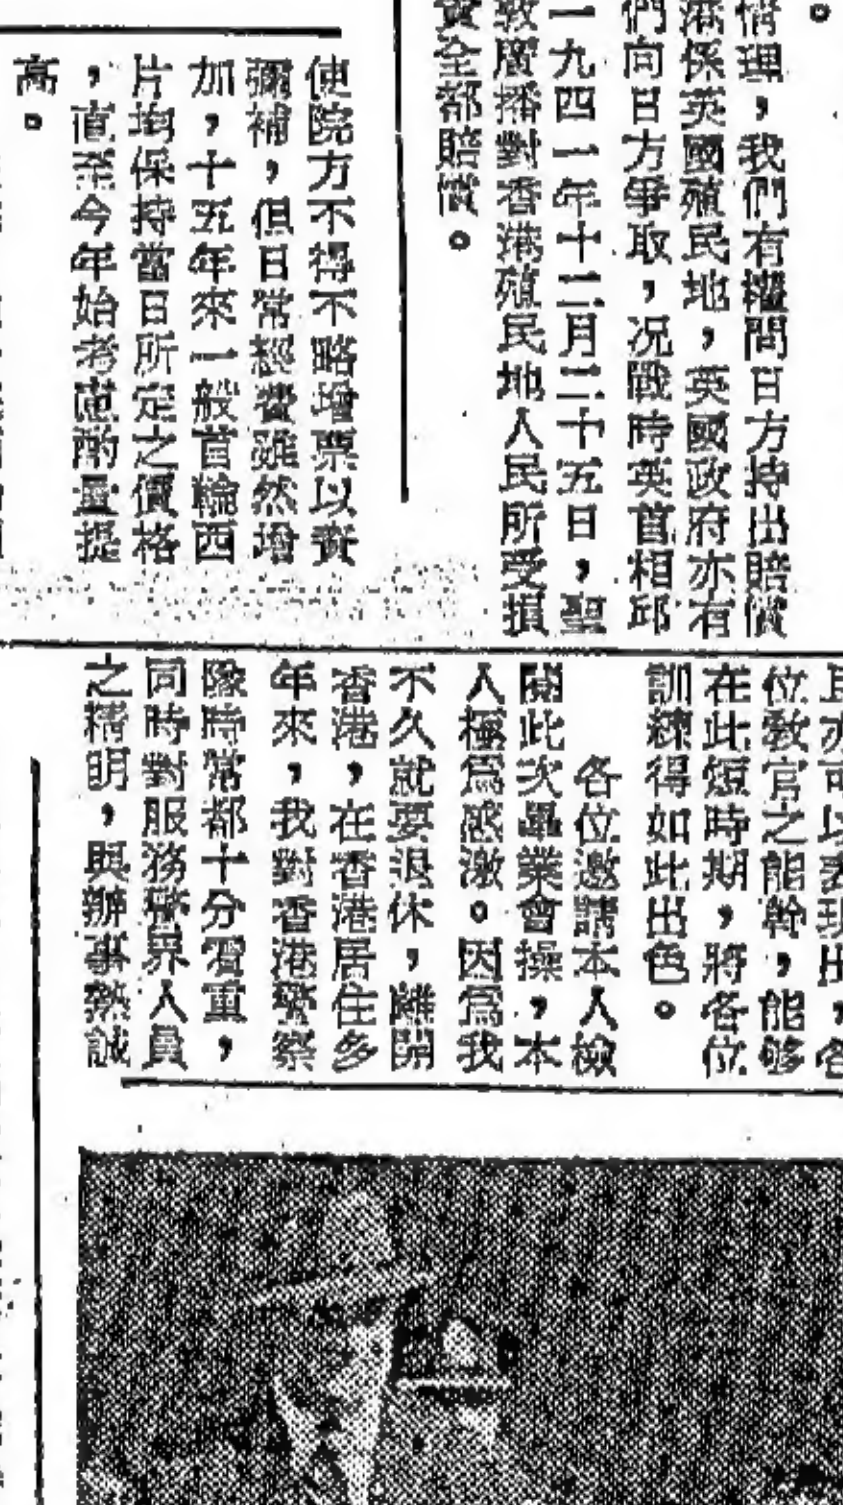 。
情理，我們有權問日方持出賠償
港係英國殖民地，英國政府亦有
們向日方爭取，况戰時英首相邱
一九四一年十二月二十五日，聖
敦廣播對香港殖民地人民所受損
責全部賠償。
使院方不得不略增票以資
彌補，但日常經費雖然增
加，十五年來一般首輪西
片均保持當日所定之價格
，直至今年始考慮酌量提
高。
且亦可以表現出，各
位敎官之能幹，能够
在此短時期，將各位
訓練得如此出色。
各位邀請本人檢
閱此次畢業會操，本
人極爲感激。因爲我
不久就要退休，離開
香港，在香港居住多
年來，我對香港警察
隊時常都十分看重，
同時對服務警界人員
之精明，與辦事熱誠